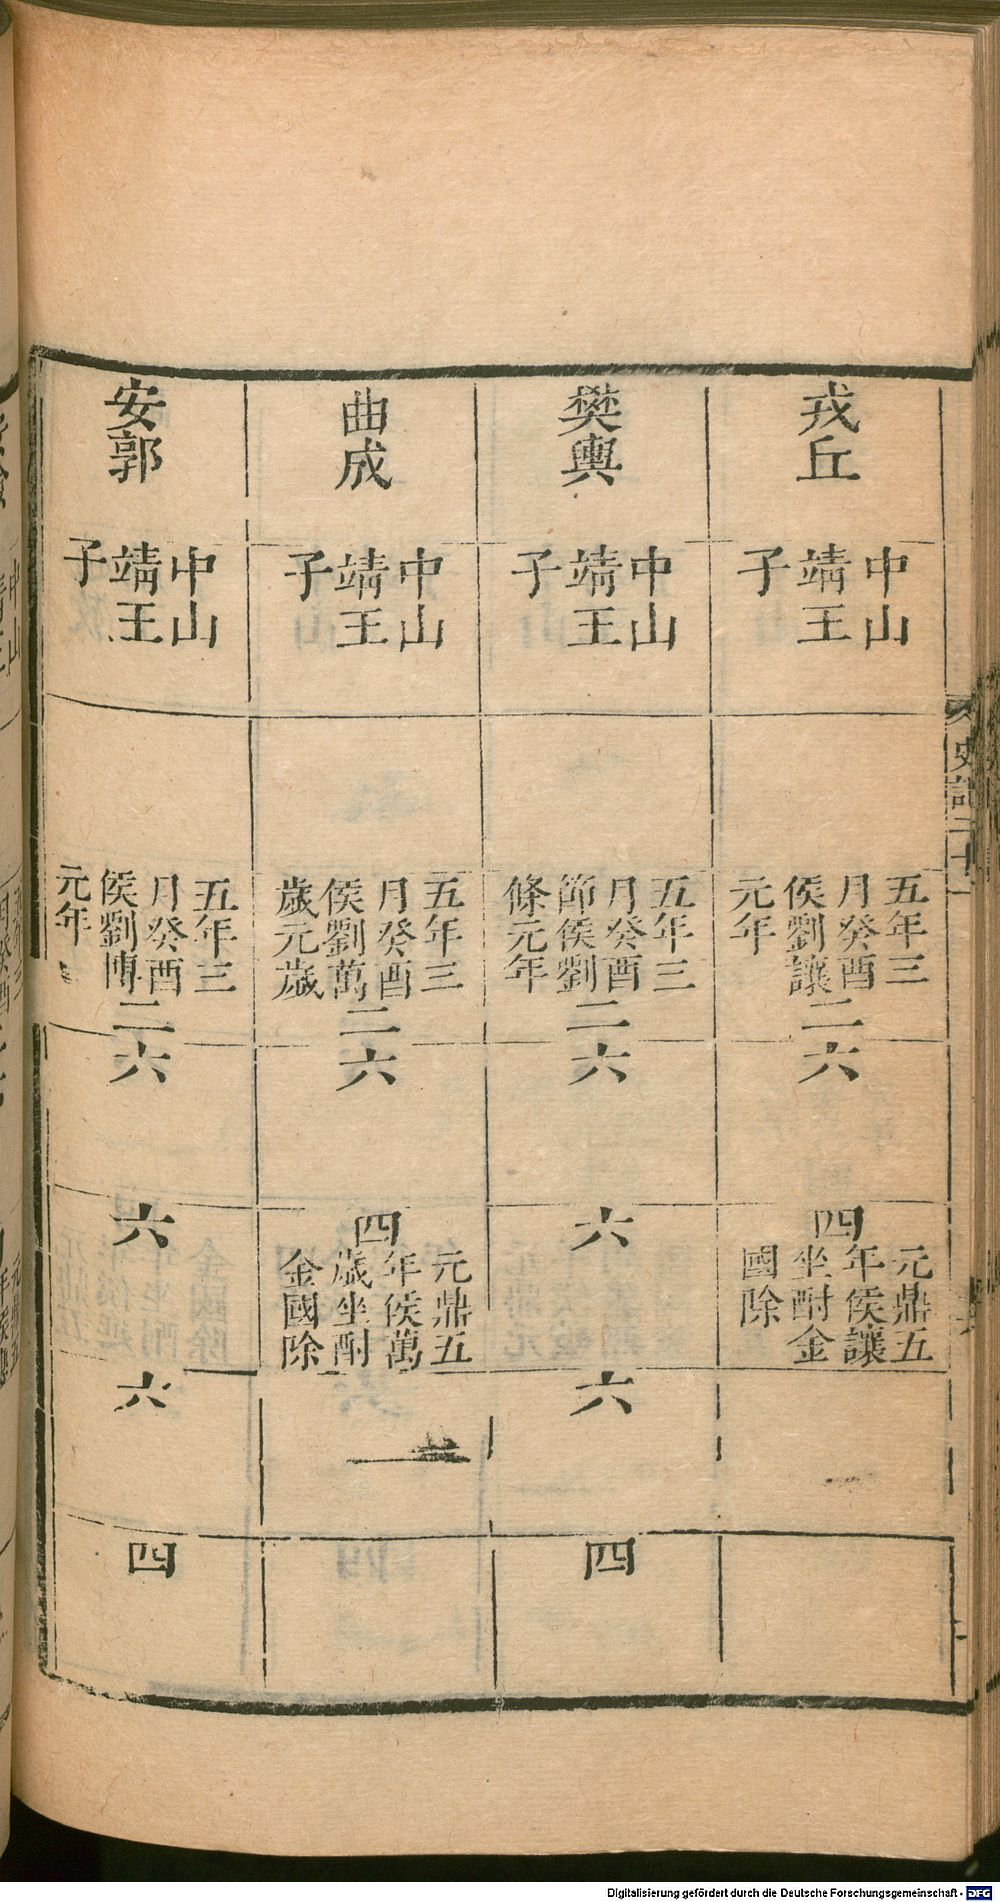 戎丘
中山
靖王
子
五年三
月癸酉
侯劉讓
元年
二
六
四
元鼎五
年侯讓
坐酎金
國除
樊輿
中山
靖王
子
五年三
月癸酉
節侯劉
條元年
二
六
六
六
四
曲成
中山
靖王
子
五年三
月癸酉
侯劉萬
歲元歲
二
六
四
元鼎五
年侯萬
歲坐酎
金國除
安郭
中山
靖王
子
五年三
月癸酉
侯劉博
元年
二
六
六
六
四
Digitalisierung gefördert durch die Deutsche Forschungsgemeinschaft - DFG